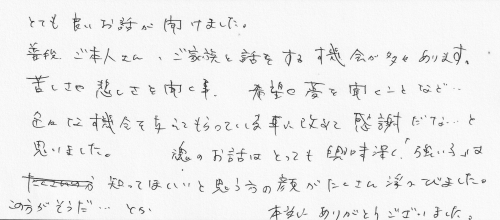 とても良いお話が聞けました。
普段ご本人さん、ご家族と話をする機会が多々あります。
苦しさや悲しさを聞く事、希望や夢を聞くことなど…
色んな機会を与えてもらっている事に改めて感謝だな…と
思いました。 魂のお話はとっても興味深く、「強いろ」は
知ってほしいと思う方の顔がたくさん浮かびました。
この方がそうだ…とか 本当にありがとうございました。